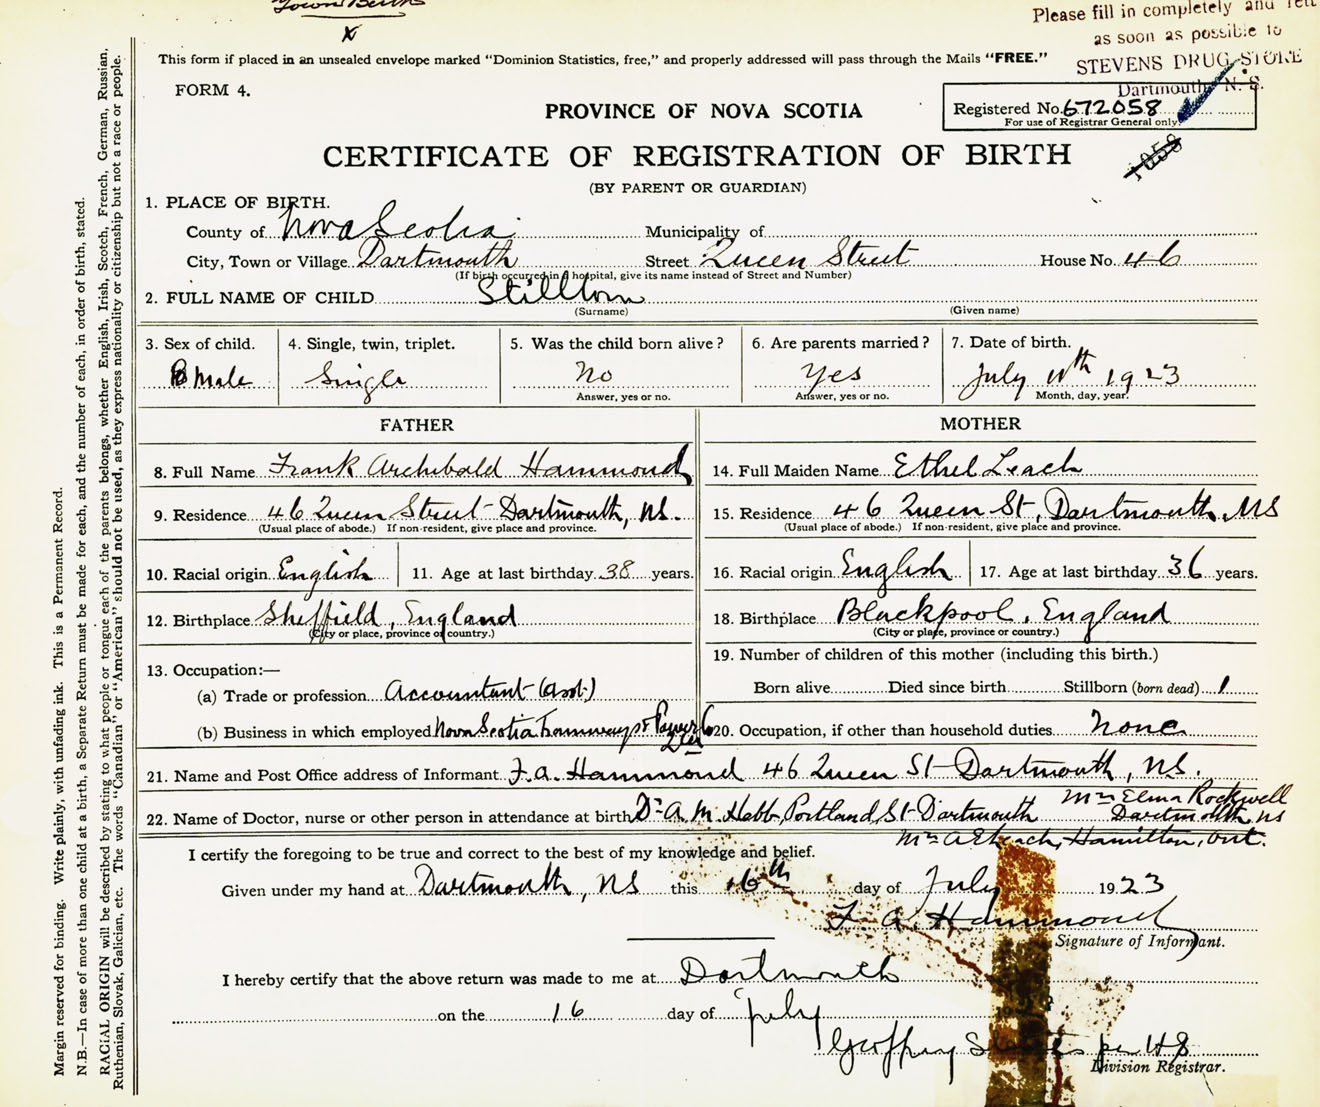 Town Birth
x
Please fill in completely and
as soon as possible to
STEVENS DRUG STORE
Dartmouth N. S.
This form if placed in an unsealed envelope marked "Dominion Statistics, free," and properly addressed will pass through the Mails "FREE."
FORM 4.
PROVINCE OF NOVA SCOTIA
Registered No. 672058
For use of Registrar General only.
1058
CERTIFICATE OF REGISTRATION OF BIRTH
(BY PARENT OR GUARDIAN)
1. PLACE OF BIRTH.
County of Nova Scotia Municipality of
City, Town or Village Dartmouth Street Queen Street House No. 46
(If birth occurred in a hospital, give its name instead of Street and Number)
2. FULL NAME OF CHILD Stillborn
(Surname) (Given name)
3. Sex of child. 4. Single, twin, triplet. 5. Was the child born alive? 6. Are parents married? 7. Date of birth.
Male Single No Yes July 10th 1923
Answer, yes or no. Answer, yes or no. Month, day, year.
FATHER MOTHER
8. Full Name Frank Archibald Hammond 14. Full Maiden Name Ethel Leach
9. Residence 46 Queen Street Dartmouth, N.S. 15. Residence 46 Queen St, Dartmouth, NS
(Usual place of abode.) If non-resident, give place and province. (Usual place of abode.) If non-resident, give place and province.
10. Racial origin English 11. Age at last birthday 38 years. 16. Racial origin English 17. Age at last birthday 36 years.
12. Birthplace Sheffield, England 18. Birthplace Blackpool, England
(City or place, province or country.) (City or place, province or country.)
13. Occupation:— 19. Number of children of this mother (including this birth.)
(a) Trade or profession Accountant (asst.) Born alive Died since birth Stillborn (born dead) 1
(b) Business in which employed Nova Scotia Tramways & Power Co 20. Occupation, if other than household duties none
21. Name and Post Office address of Informant F. A. Hammond 46 Queen St Dartmouth, N.S.
22. Name of Doctor, nurse or other person in attendance at birth Dr A. M. Hebb, Portland St Dartmouth Mrs Elma Rockwell
Dartmouth, NS
Mrs A Leach, Hamilton, Ont.
I certify the foregoing to be true and correct to the best of my knowledge and belief.
Given under my hand at Dartmouth, NS this 16th day of July 1923
F. A. Hammond
Signature of Informant.
I hereby certify that the above return was made to me at Dartmouth
on the 16 day of July
Geoffrey per HS
Division Registrar.
Margin reserved for binding. Write plainly, with unfading ink. This is a Permanent Record.
N.B.—In case of more than one child at a birth, a Separate Return must be made for each, and the number of each, in order of birth, stated.
RACIAL ORIGIN will be described by stating to what people or tongue each of the parents belongs, whether English, Irish, Scotch, French, German, Russian,
Ruthenian, Slovak, Galician, etc. The words "Canadian" or "American" should not be used, as they express nationality or citizenship but not a race or people.